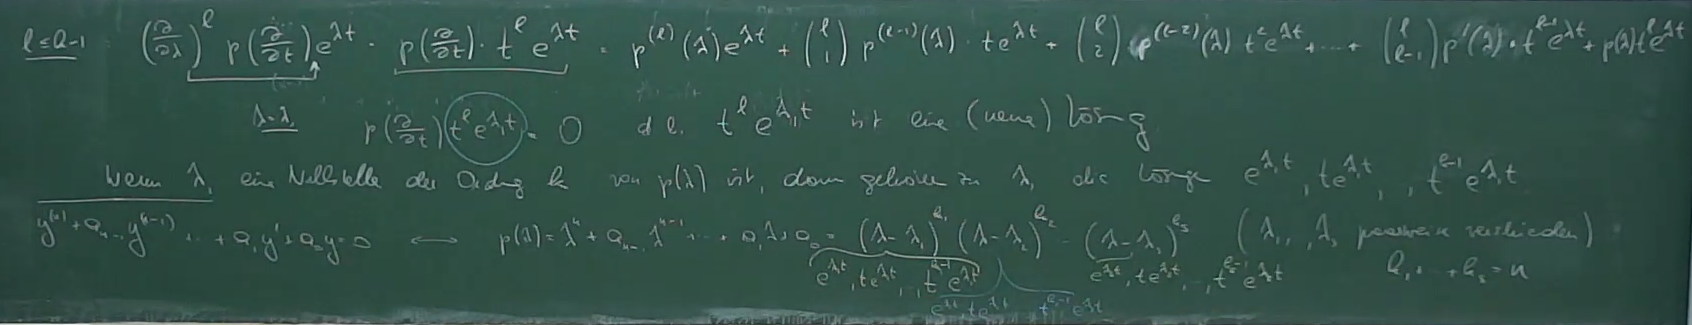 l ≤ k-1 (∂/∂λ)^l p(∂/∂t) e^{λt} = p(∂/∂t) · t^l e^{λt} = p^{(l)}(λ) e^{λt} + (l 1) p^{(l-1)}(λ) · t e^{λt} + (l 2) p^{(l-2)}(λ) t^2 e^{λt} + ... + (l l-1) p'(λ) · t^{l-1} e^{λt} + p(λ) t^l e^{λt}
λ=λ₁ p(∂/∂t)(t^l e^{λ₁t}) = 0 d.h. t^l e^{λ₁t} ist eine (neue) Lösung
Wenn λ₁ eine Nullstelle der Ordnung k von p(λ) ist, dann gehören zu λ₁ die Lösungen e^{λ₁t}, te^{λ₁t}, , t^{k-1} e^{λ₁t}
y^{(n)} + a_{n-1} y^{(n-1)} + ... + a₁y' + a₀y = 0 ⟷ p(λ) = λ^n + a_{n-1} λ^{n-1} + ... + a₁λ + a₀ = (λ-λ₁)^{k₁} (λ-λ₂)^{k₂} ... (λ-λ_s)^{k_s} (λ₁, , λ_s paarweise verschieden)
e^{λ₁t}, te^{λ₁t}, .., t^{k₁-1} e^{λ₁t} e^{λ_s t}, te^{λ_s t}, .., t^{k_s-1} e^{λ_s t} k₁ + ... + k_s = n
e^{λ₂t}, te^{λ₂t}, .., t^{k₂-1} e^{λ₂t}